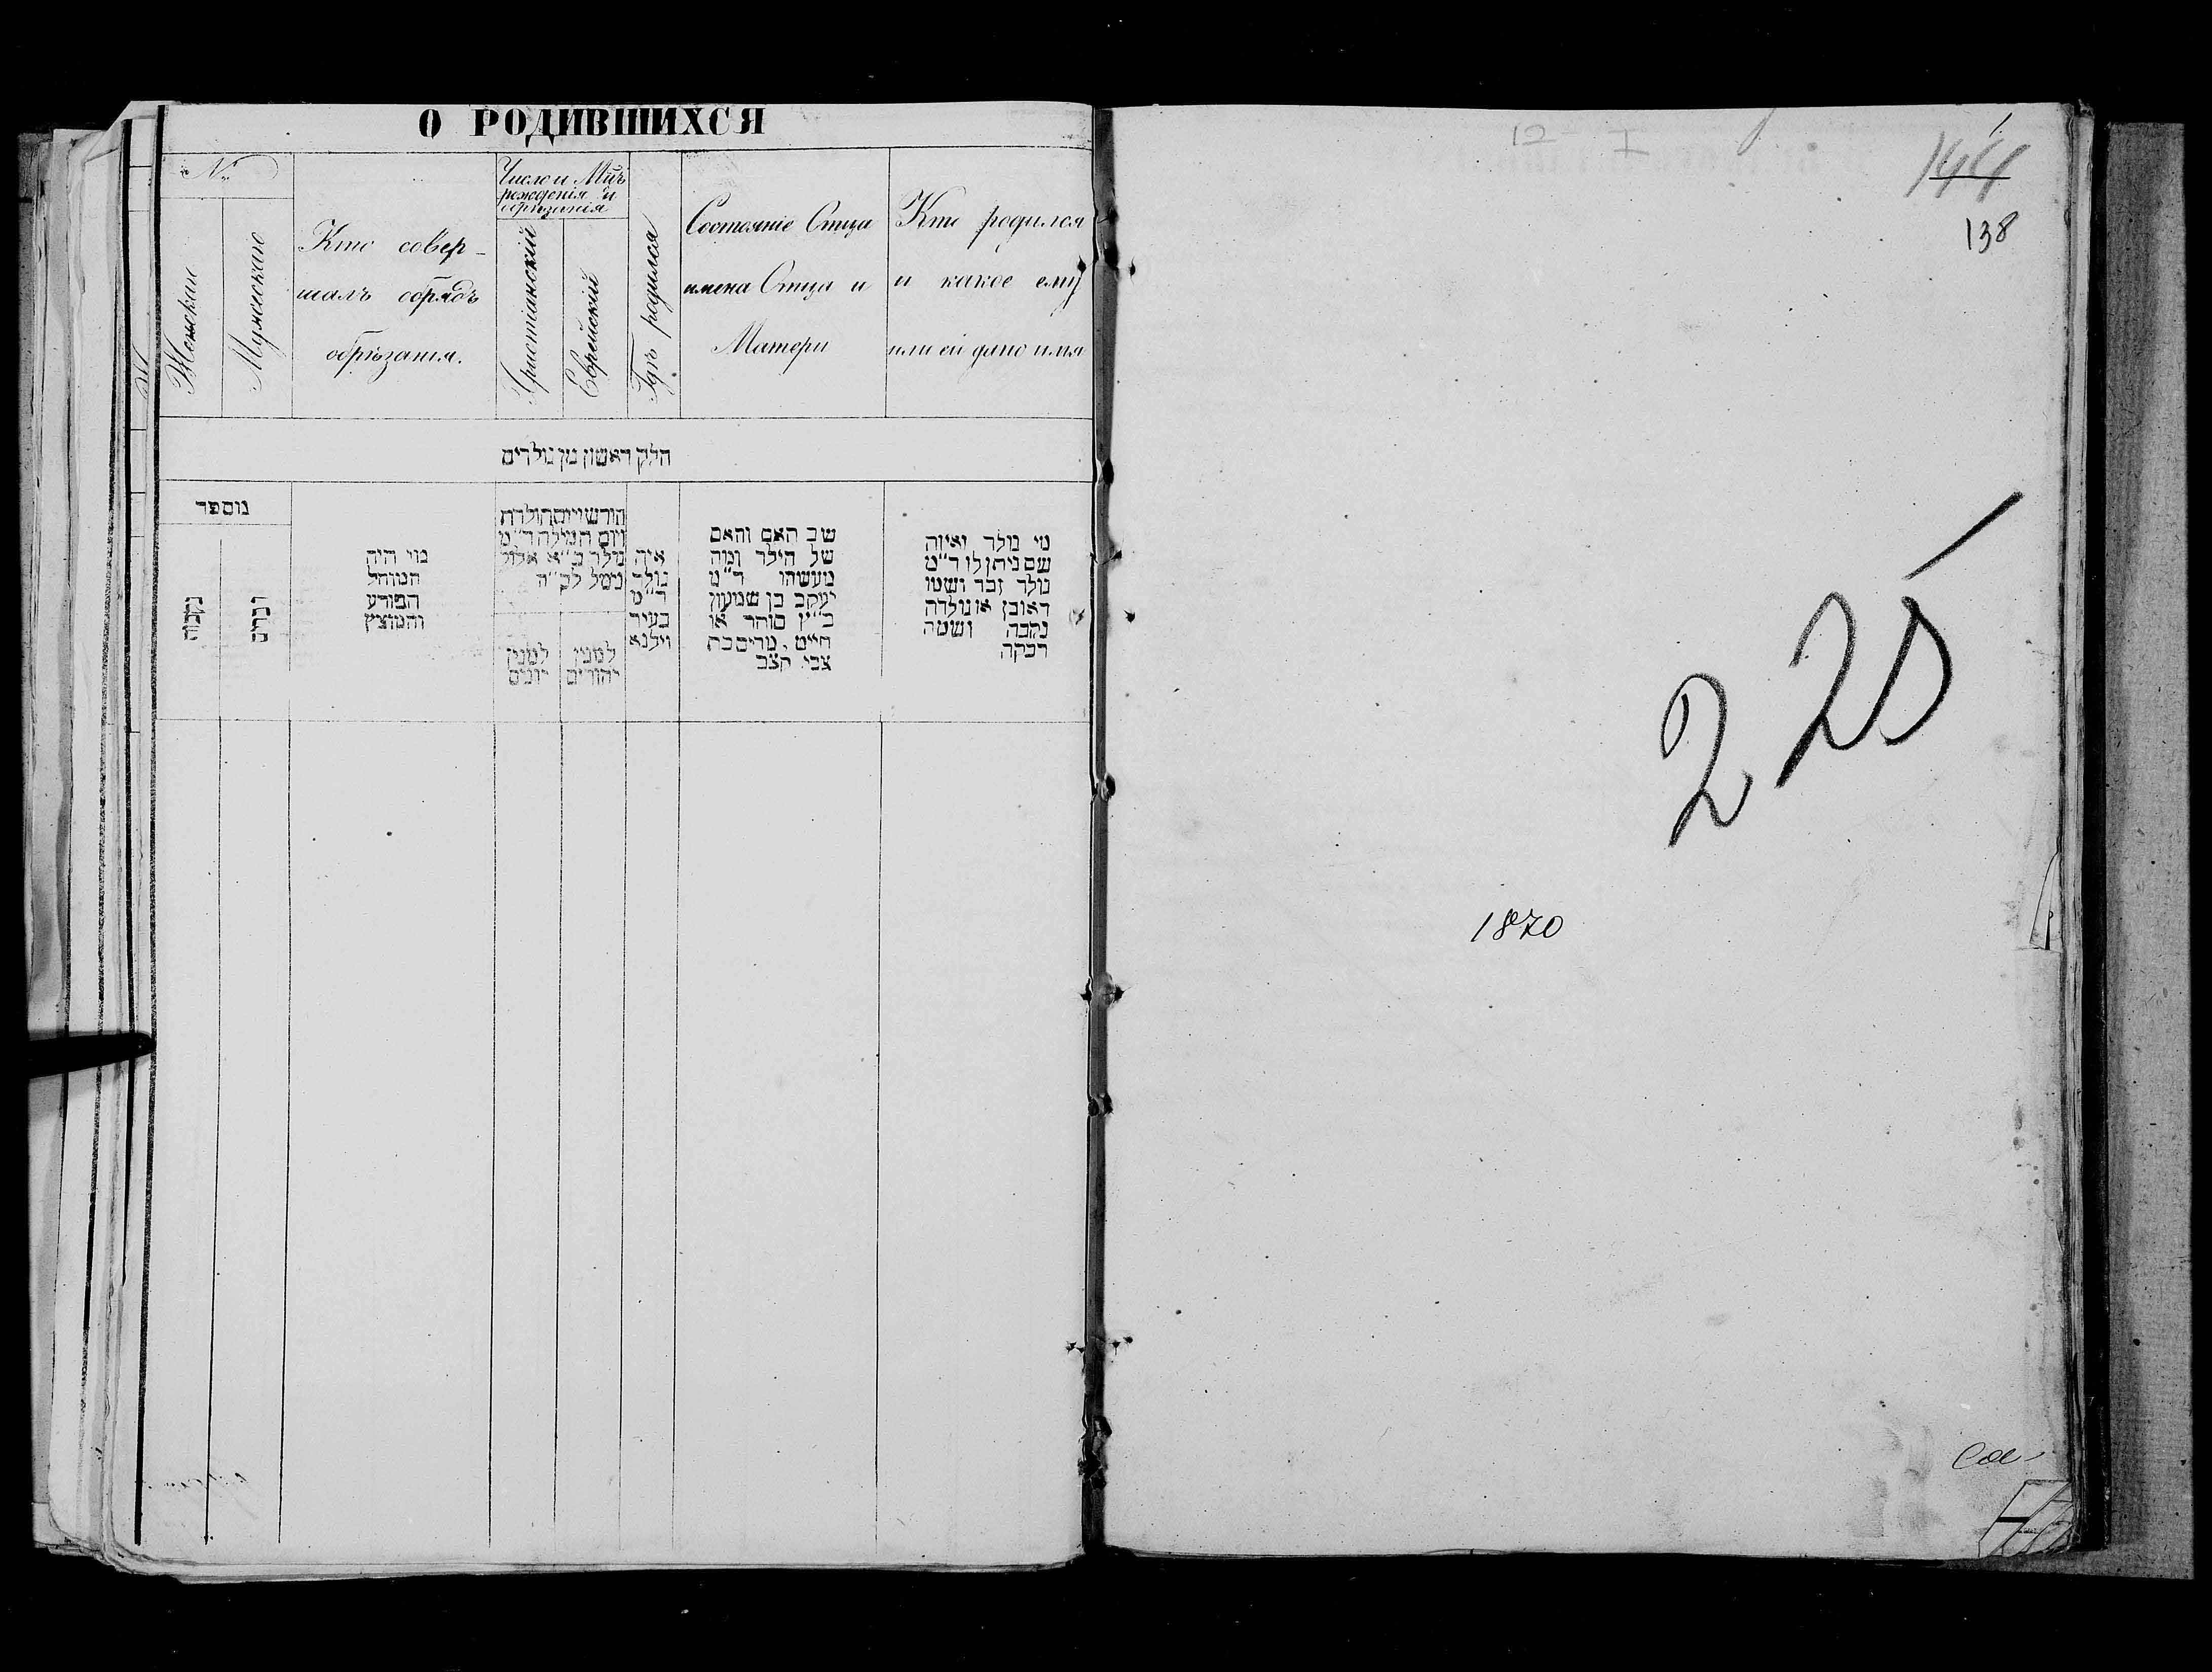 О РОДИВШИХСЯ
№
Женскаго
Мужескаго
Кто совер-
шалъ обрядъ
обрѣзанія.
Число и Мцъ
рожденія и
обрѣзанія
Христіанскій
Еврейскій
Гдѣ родился
Состояніе Отца
имена Отца и
Матери
Кто родился
и какое ему
или ей дано имя
חלק ראשון מן נולדים
מספר
נקבות
זכרים
מי היה
המוהל
הפורע
והמוצץ
חודש ויום הולדת
ויום המילה ד״מ
נולד כ״א אלול
נימל לב״ה
למנין
יונים
למנין
יהודים
איה
נולד
ד״מ
בעיר
ווילנא
שם האב והאם
של הילד ומה
מעשהו ד״מ
יעקב בן שמעון
כ״ץ סוחר או
חייט, מרים בת
צבי קצב
מי נולד ואיזה
שם ניתן לו ד״מ
נולד זכר ושמו
ראובן או נולדה
נקבה ושמה
רבקה
12 I
144
138
225
1870